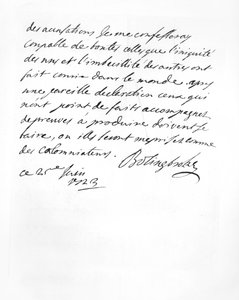 des accusations je me confesseray
coupable de toutes celles que l'iniquité
des uns et l'imbecillité des autres ont
fait courir dans le monde. apres
une pareille declaration ceux qui
n'ont point de faits accompagnes
de preuves a produire doivent se
taire, ou ils seront meprisés comme
des calomniateurs.
Bolingbroke
ce 2 Juin
1723